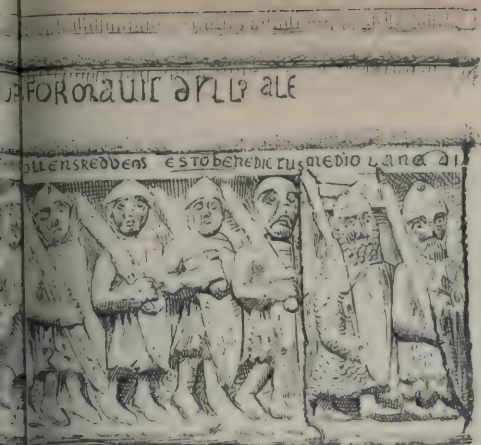 FORMAUIT ALE
OLLENSREDDENS ESTO BENEDICTUS MEDIOLANA DI